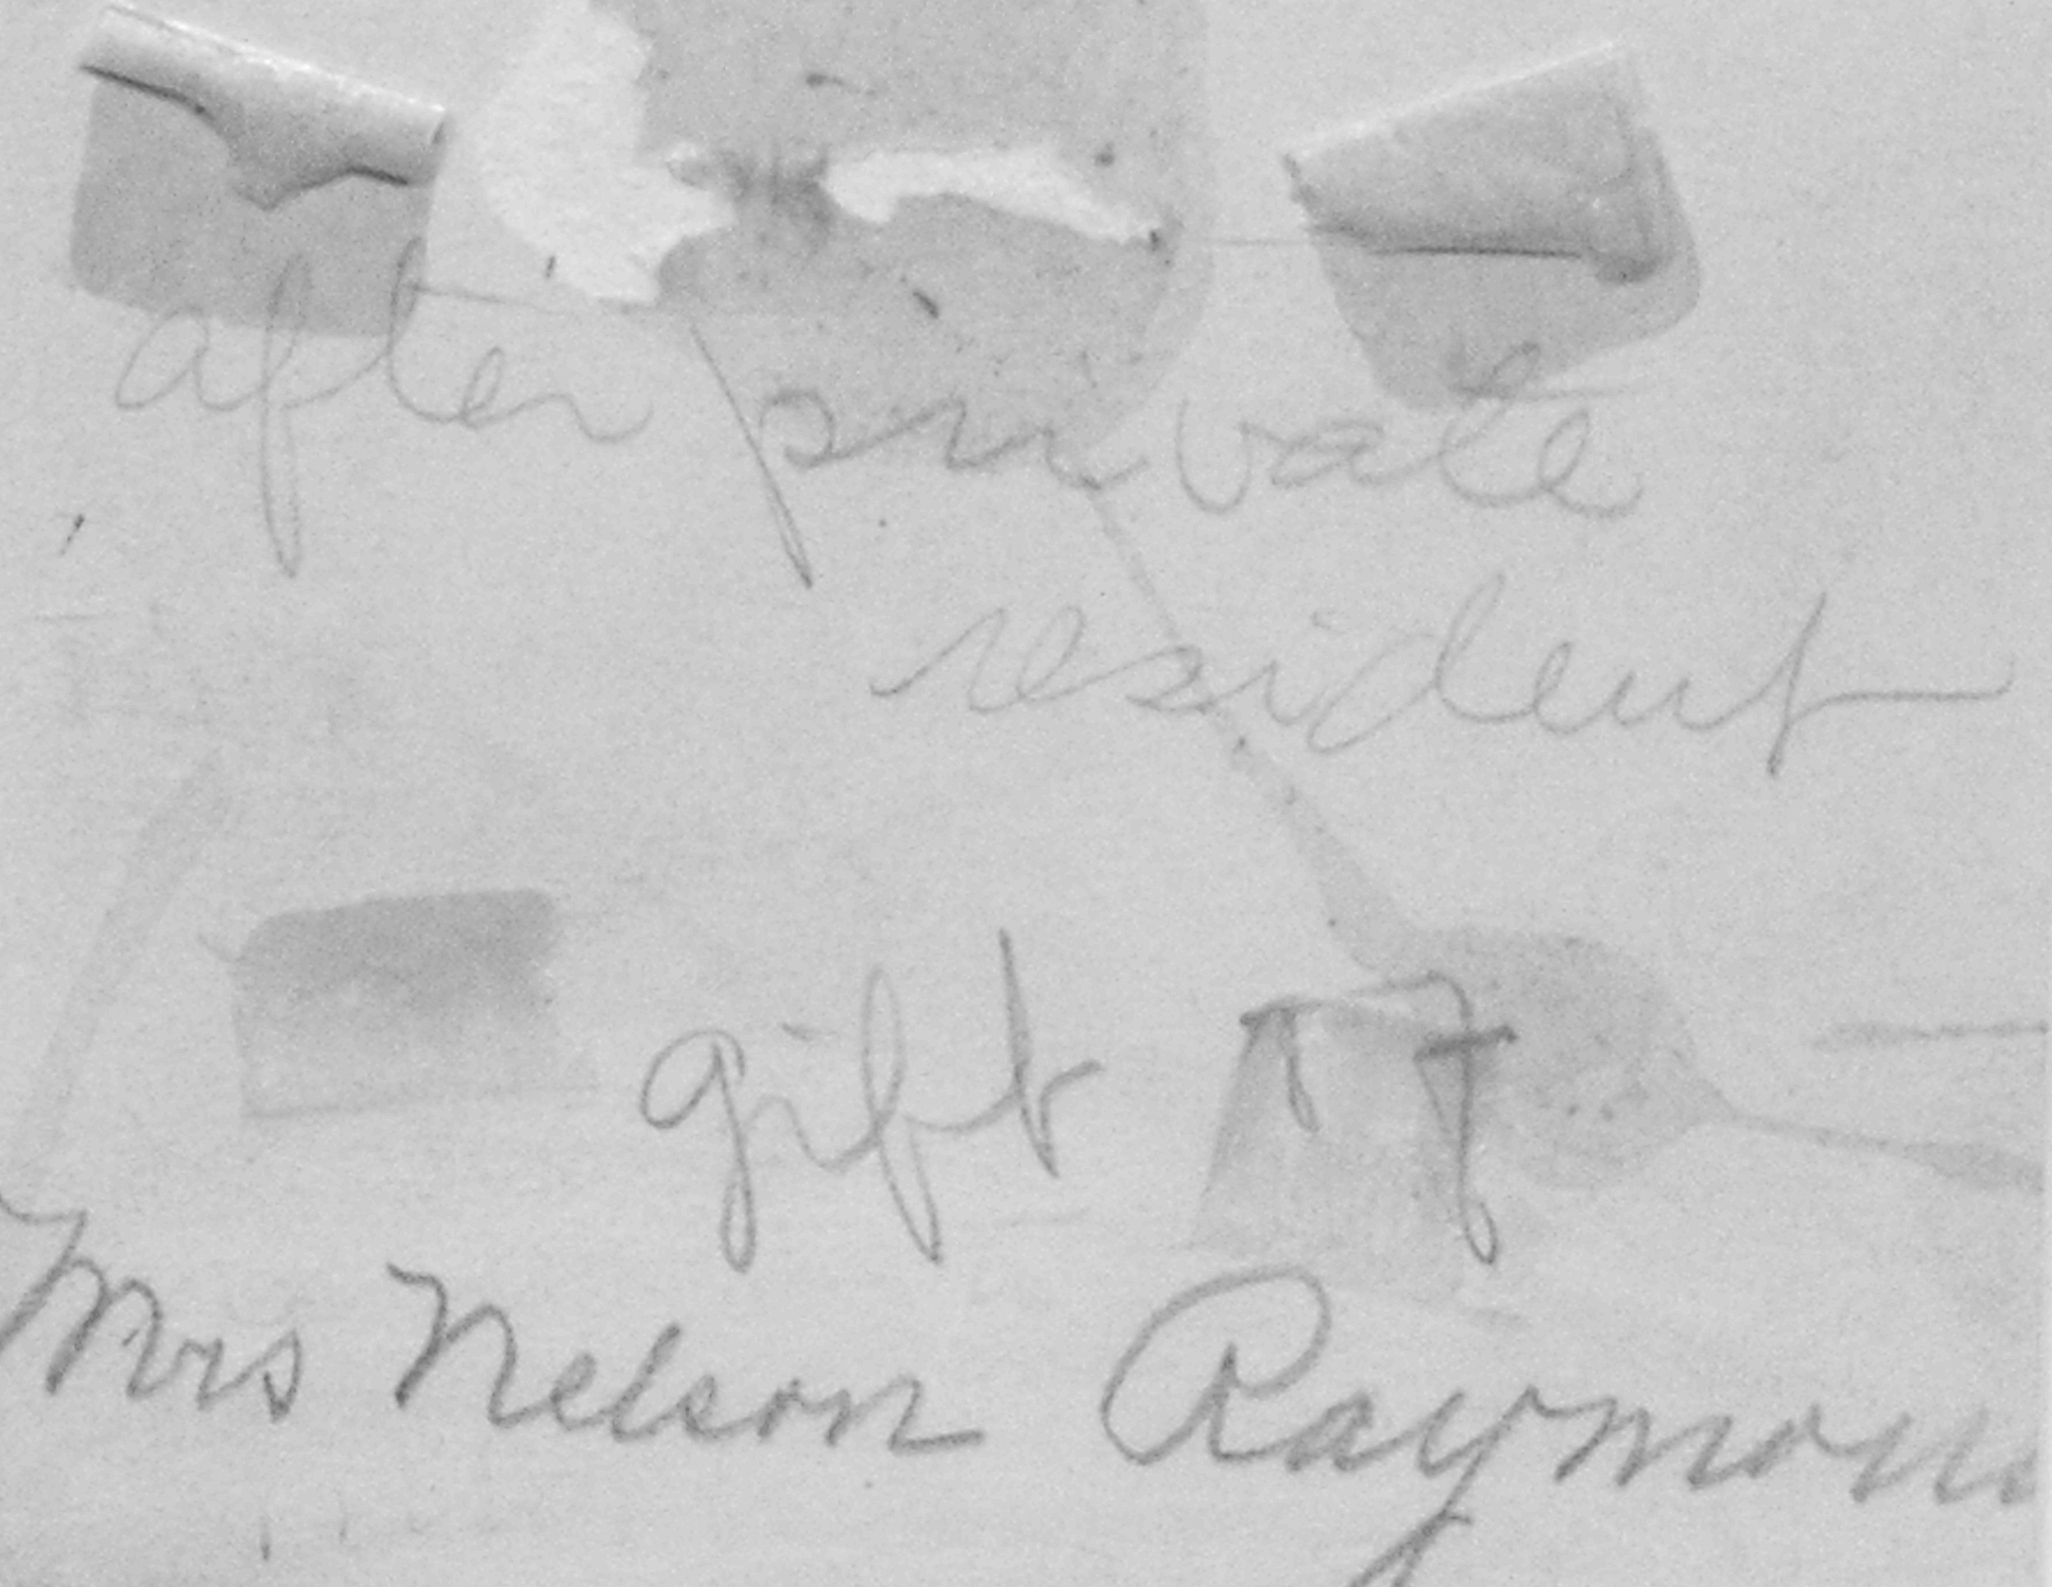 after private
resident
gift of
Mrs Nelson Raymon